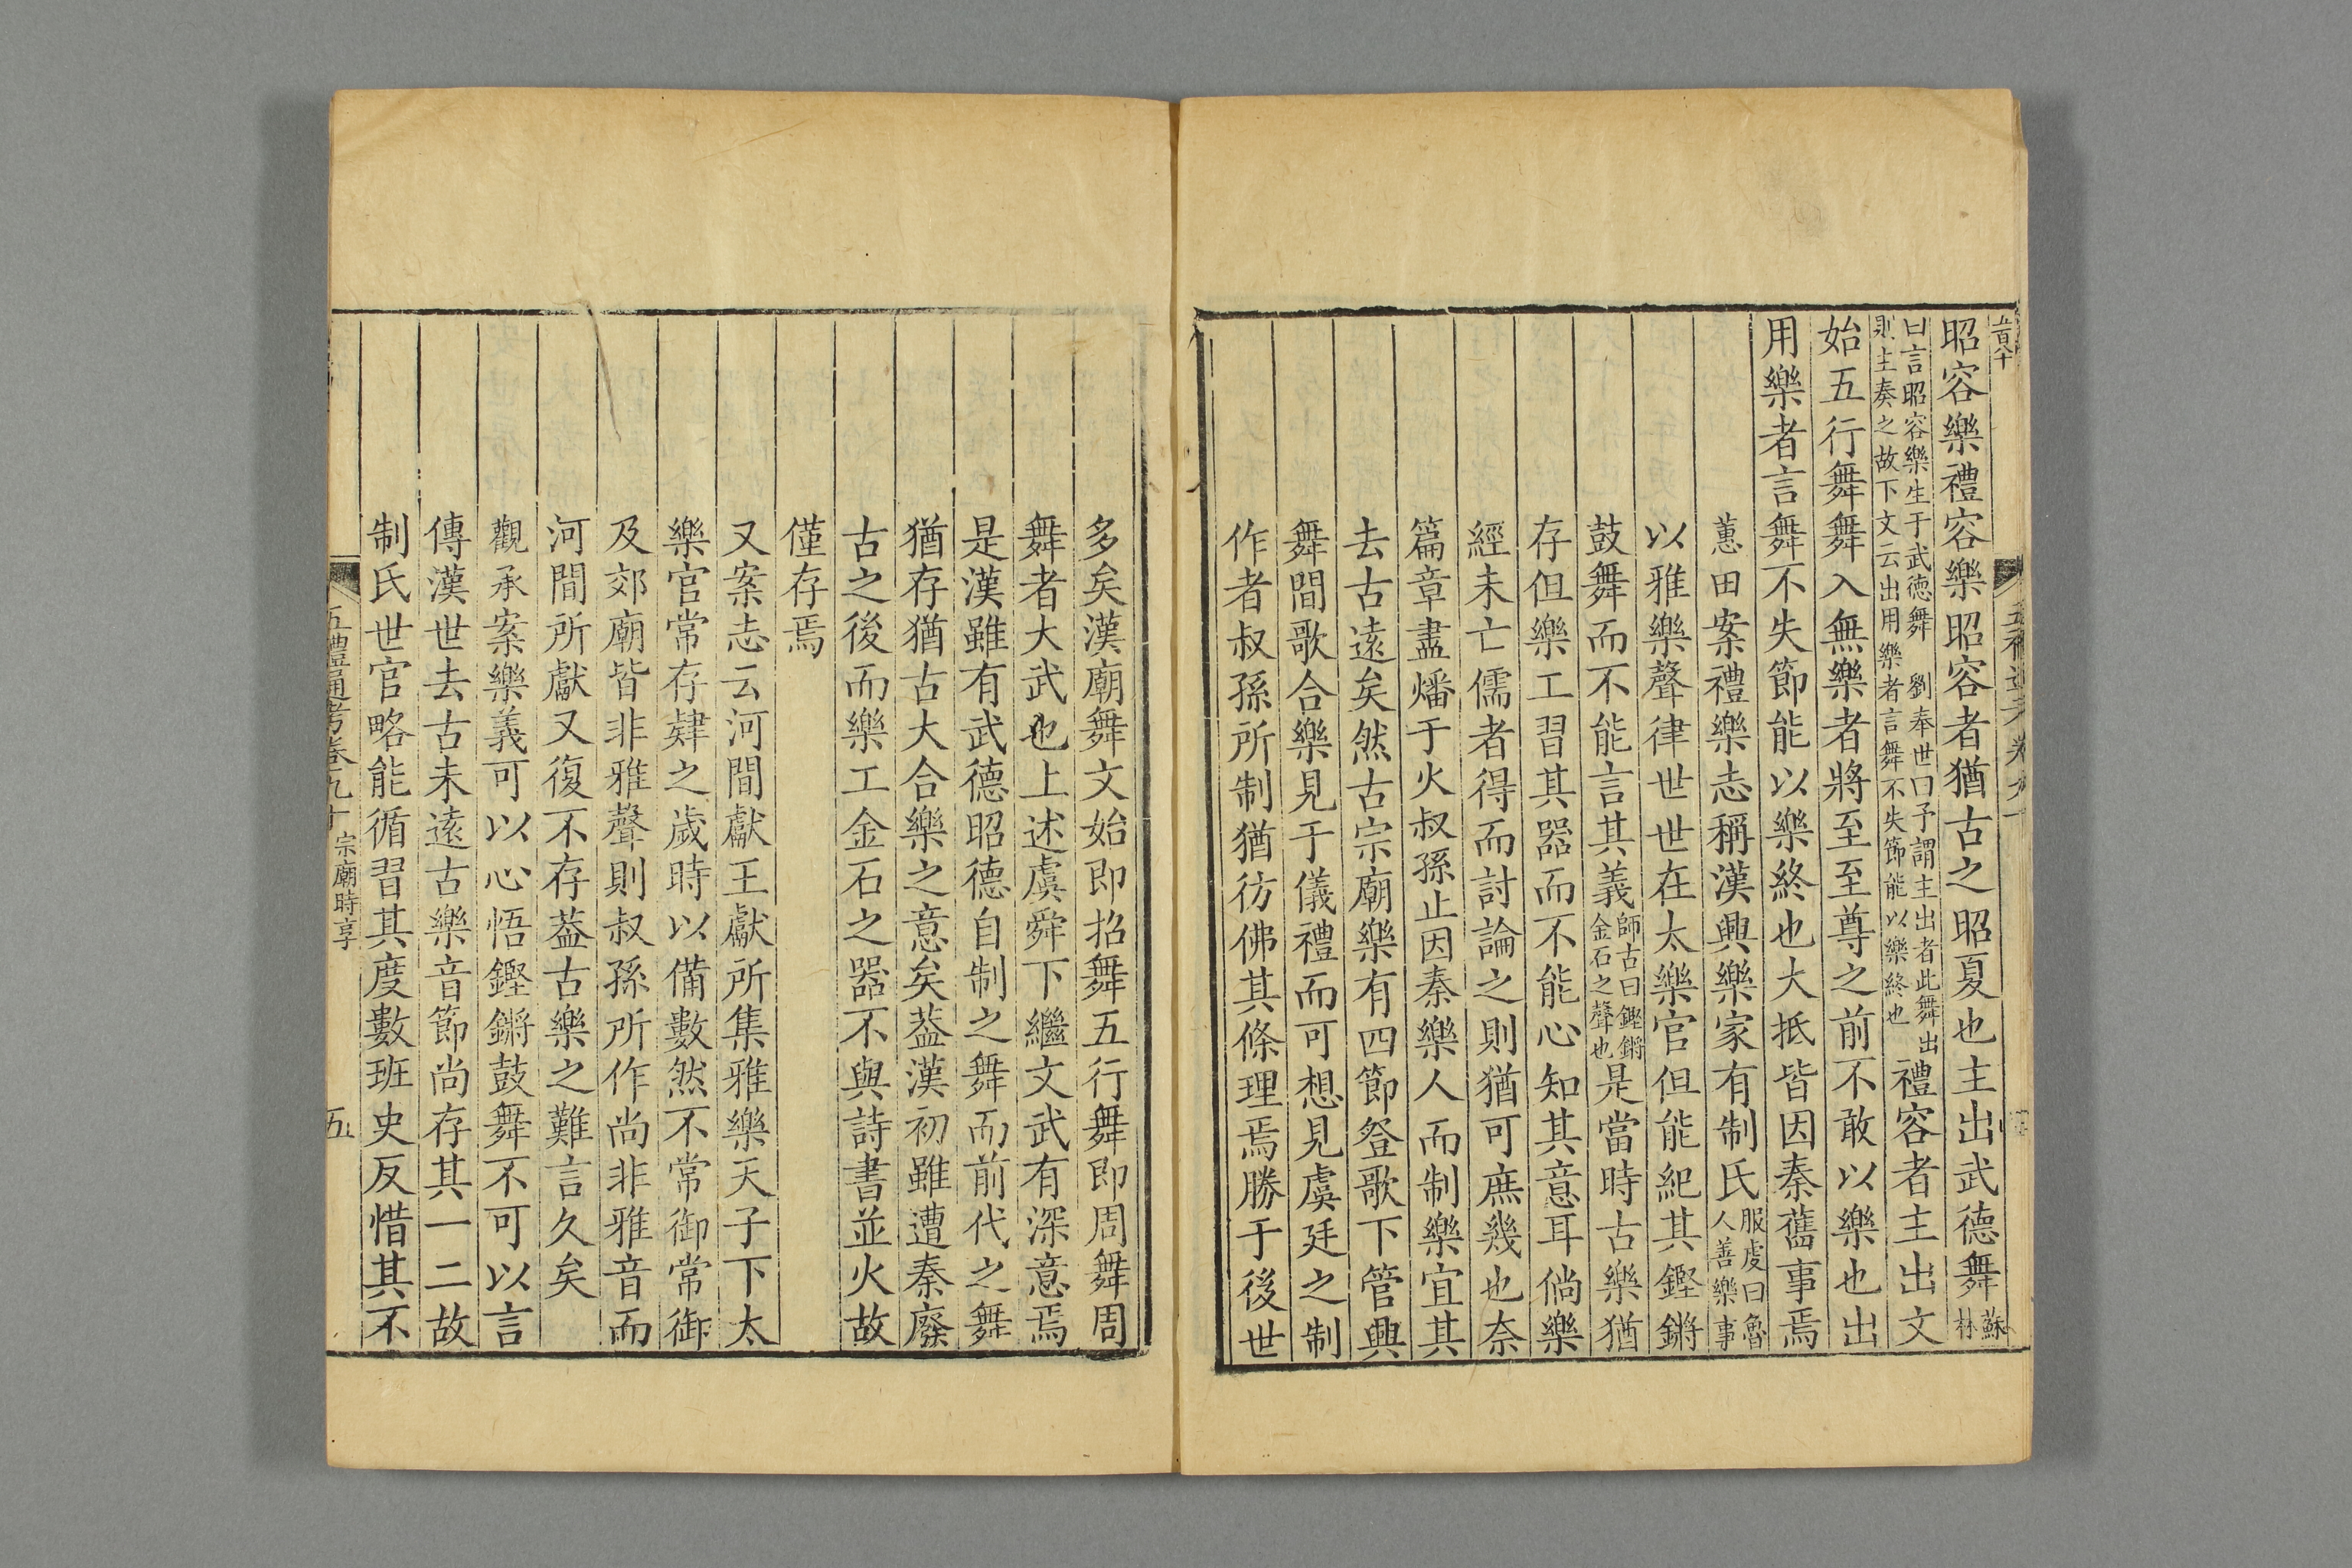 昭容樂禮容樂昭容者猶古之昭夏也主出武德舞蘇林
曰言昭容樂生于武德舞 劉奉世曰予謂主出者此舞出
則主奏之故下文云出用樂者言舞不失節能以樂終也 禮容者主出文
始五行舞舞入無樂者將至至尊之前不敢以樂也出
用樂者言舞不失節能以樂終也大抵皆因秦舊事焉
蕙田案禮樂志稱漢興樂家有制氏服虔曰魯人善樂事
以雅樂聲律世世在太樂官但能紀其鏗鏘
鼓舞而不能言其義師古曰鏗鏘金石之聲也是當時古樂猶
存但樂工習其器而不能心知其意耳倘樂
經未亡儒者得而討論之則猶可庶幾也奈
篇章盡燔于火叔孫止因秦樂人而制樂宜其
去古遠矣然古宗廟樂有四節登歌下管興
舞間歌合樂見于儀禮而可想見虞廷之制
作者叔孫所制猶彷佛其條理焉勝于後世
多矣漢廟舞文始即招舞五行舞即周舞周
舞者大武也上述虞舜下繼文武有深意焉
是漢雖有武德昭德自制之舞而前代之舞
猶存猶古大合樂之意矣葢漢初雖遭秦廢
古之後而樂工金石之器不與詩書並火故
僅存焉
又案志云河間獻王獻所集雅樂天子下太
樂官常存肄之歲時以備數然不常御常御
及郊廟皆非雅聲則叔孫所作尚非雅音而
河間所獻又復不存葢古樂之難言久矣
觀承案樂義可以心悟鏗鏘鼓舞不可以言
傳漢世去古未遠古樂音節尚存其一二故
制氏世官略能循習其度數班史反惜其不
五禮通考卷九十 宗廟時享 五